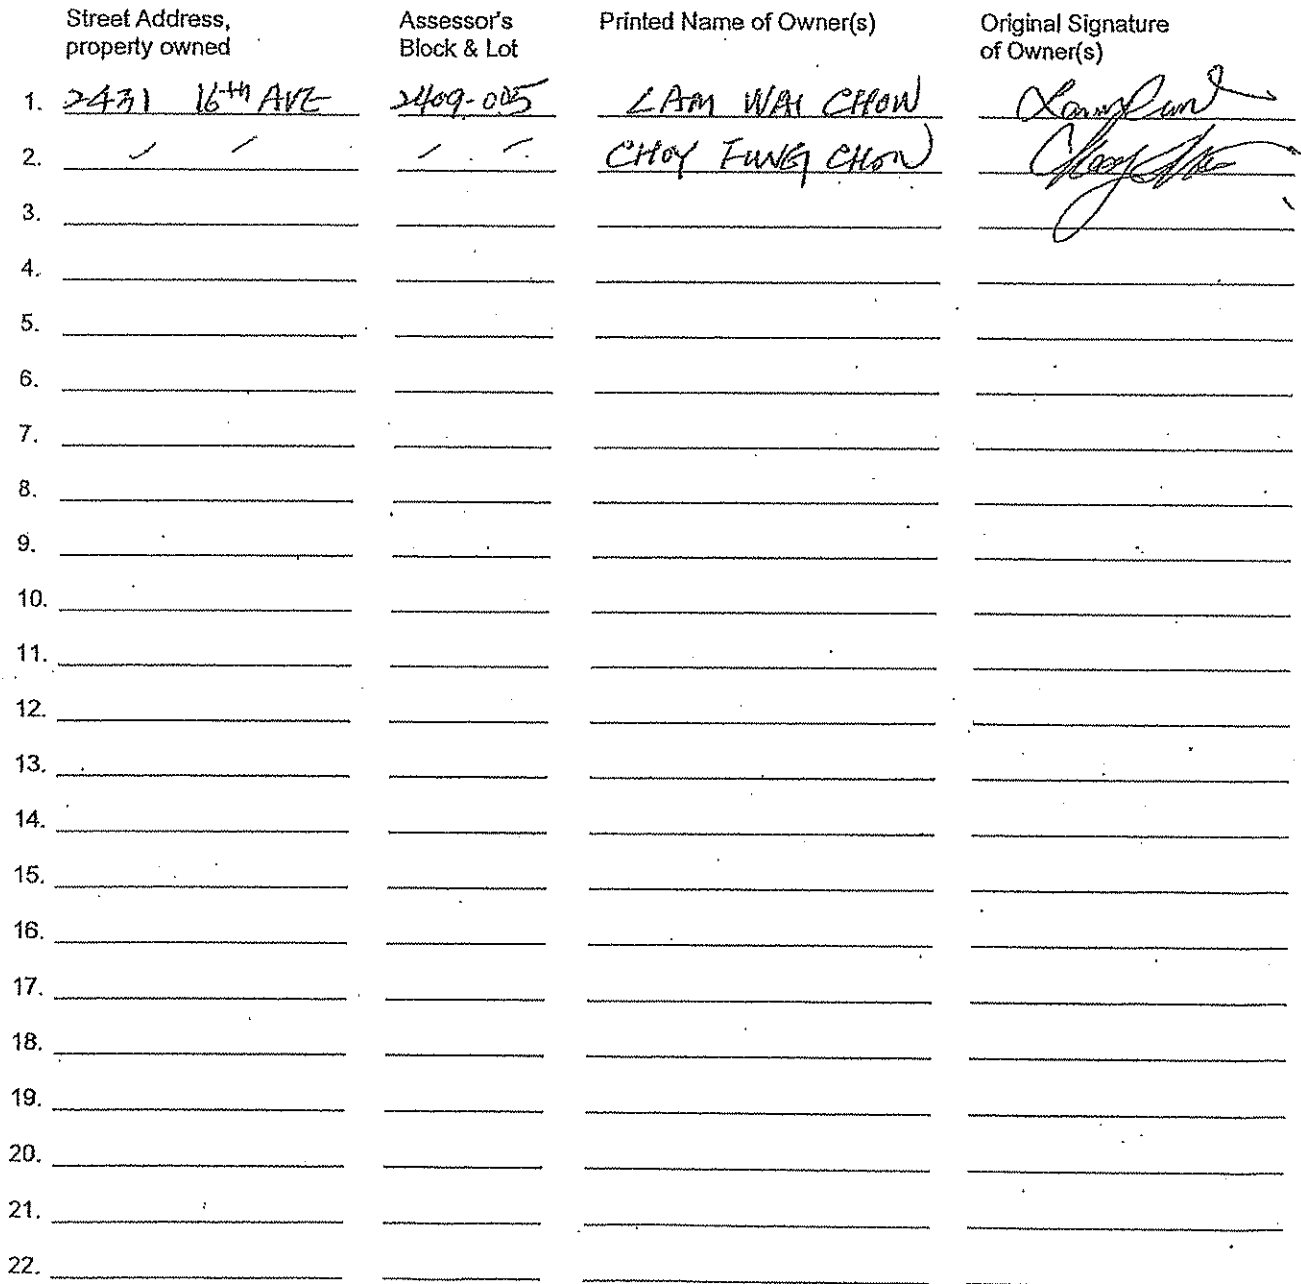 Street Address, property owned Assessor's Block & Lot Printed Name of Owner(s) Original Signature of Owner(s)
1. 2431 16th AVE 2409-005 LAM WAI CHOW
2. CHOY FUNG CHOW
3.
4.
5.
6.
7.
8.
9.
10.
11.
12.
13.
14.
15.
16.
17.
18.
19.
20.
21.
22.